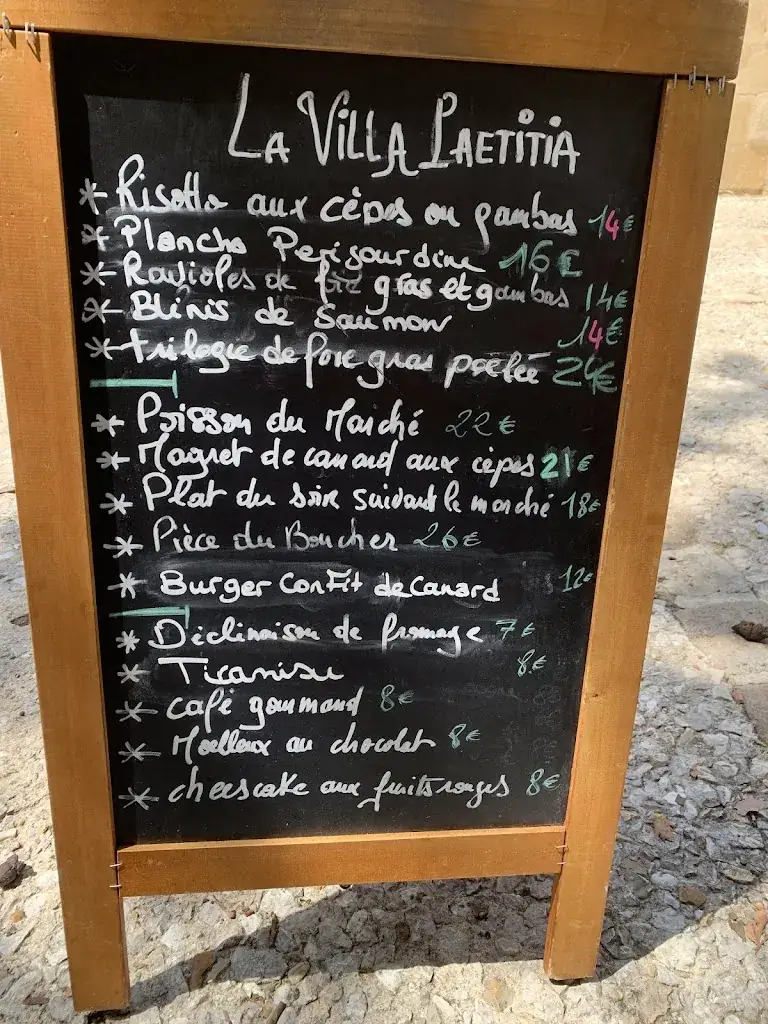 La Villa Laetitia
* Risotto aux cèpes ou gambas 14€
* Plancha Perigourdine 16€
* Ravioles de foie gras et gambas 14€
* Blinis de saumon 14€
* trilogie de foie gras poêlée 24€
* Poisson du Marché 22€
* Magret de canard aux cèpes 21€
* Plat du soir suivant le marché 18€
* Pièce du Boucher 26€
* Burger Confit de Canard 12€
* Déclinaison de fromage 7€
* Tiramisu 8€
* café gourmand 8€
* Moelleux au chocolat 8€
* cheescake aux fruits rouges 8€